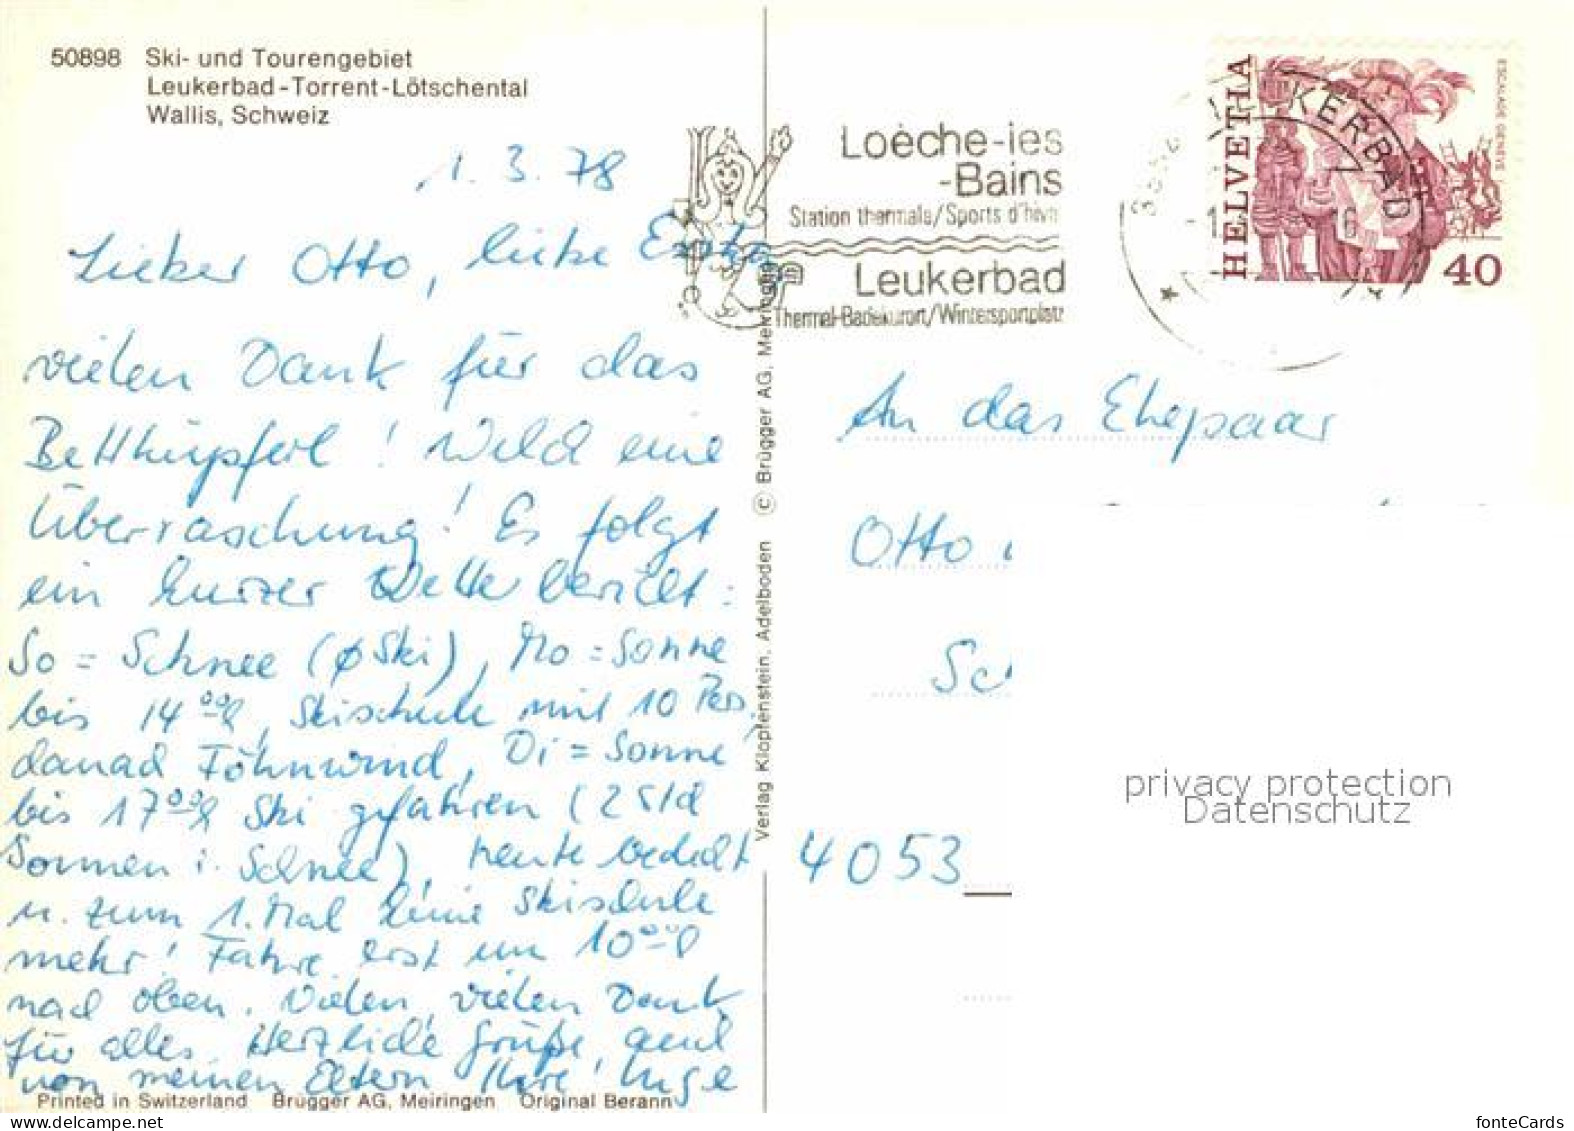 50898 Ski- und Tourengebiet
Leukerbad-Torrent-Lötschental
Wallis, Schweiz
1. 3. 78
Lieber Otto, liebe
vielen Dank für das
Betthupferl! Welch eine
Überraschung! Es folgt
ein kurzer Wetterbericht:
So = Schnee (ø Ski), Mo = Sonne
bis 14⁰⁰h, Skischule mit 10 Pers.,
danach Föhnwind, Di = Sonne
bis 17⁰⁰h Ski gefahren (2 Std
Sonnen i. Schnee), heute bedeckt
u. zum 1. Mal keine Skischule
mehr! Fahre erst um 10⁰⁰h
nach oben. Vielen, vielen Dank
für alles. Herzliche Grüße, auch
von meinen Eltern Ihre Inge
Printed in Switzerland Brügger AG, Meiringen Original Berann
Verlag Klopfenstein, Adelboden © Brügger AG, Meiringen
Loèche-les
-Bains
Station thermale/Sports d'hiver
Leukerbad
Thermal-Badekurort/Wintersportplatz
LEUKERBAD
HELVETIA
ESCALADE GENÈVE
40
An das Ehepaar
Otto
4053
privacy protection
Datenschutz
fonteCards